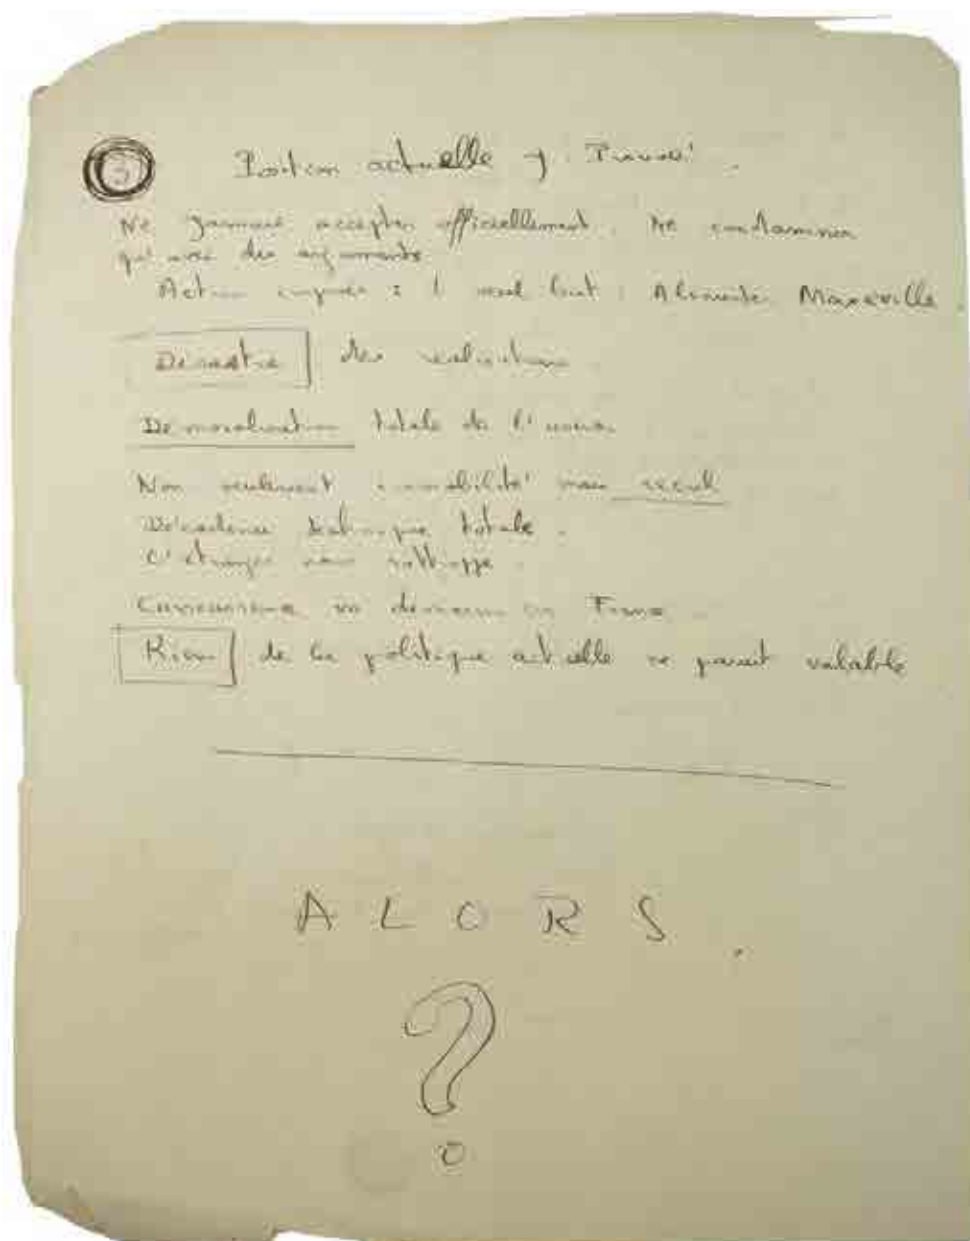 3 Position actuelle J. Prouvé.
Ne jamais accepter officiellement. Ne condamner
qu'avec des arguments
Action : 1 seul but : Alimenter Maxeville.
Désastre des réalisations
Démoralisation totale de l'usine
Non seulement immobilité mais recul
Décadence technique totale.
L'étranger nous rattrappe.
Concurrence en France.
Rien de la politique actuelle ne parait valable
A L O R S .
?